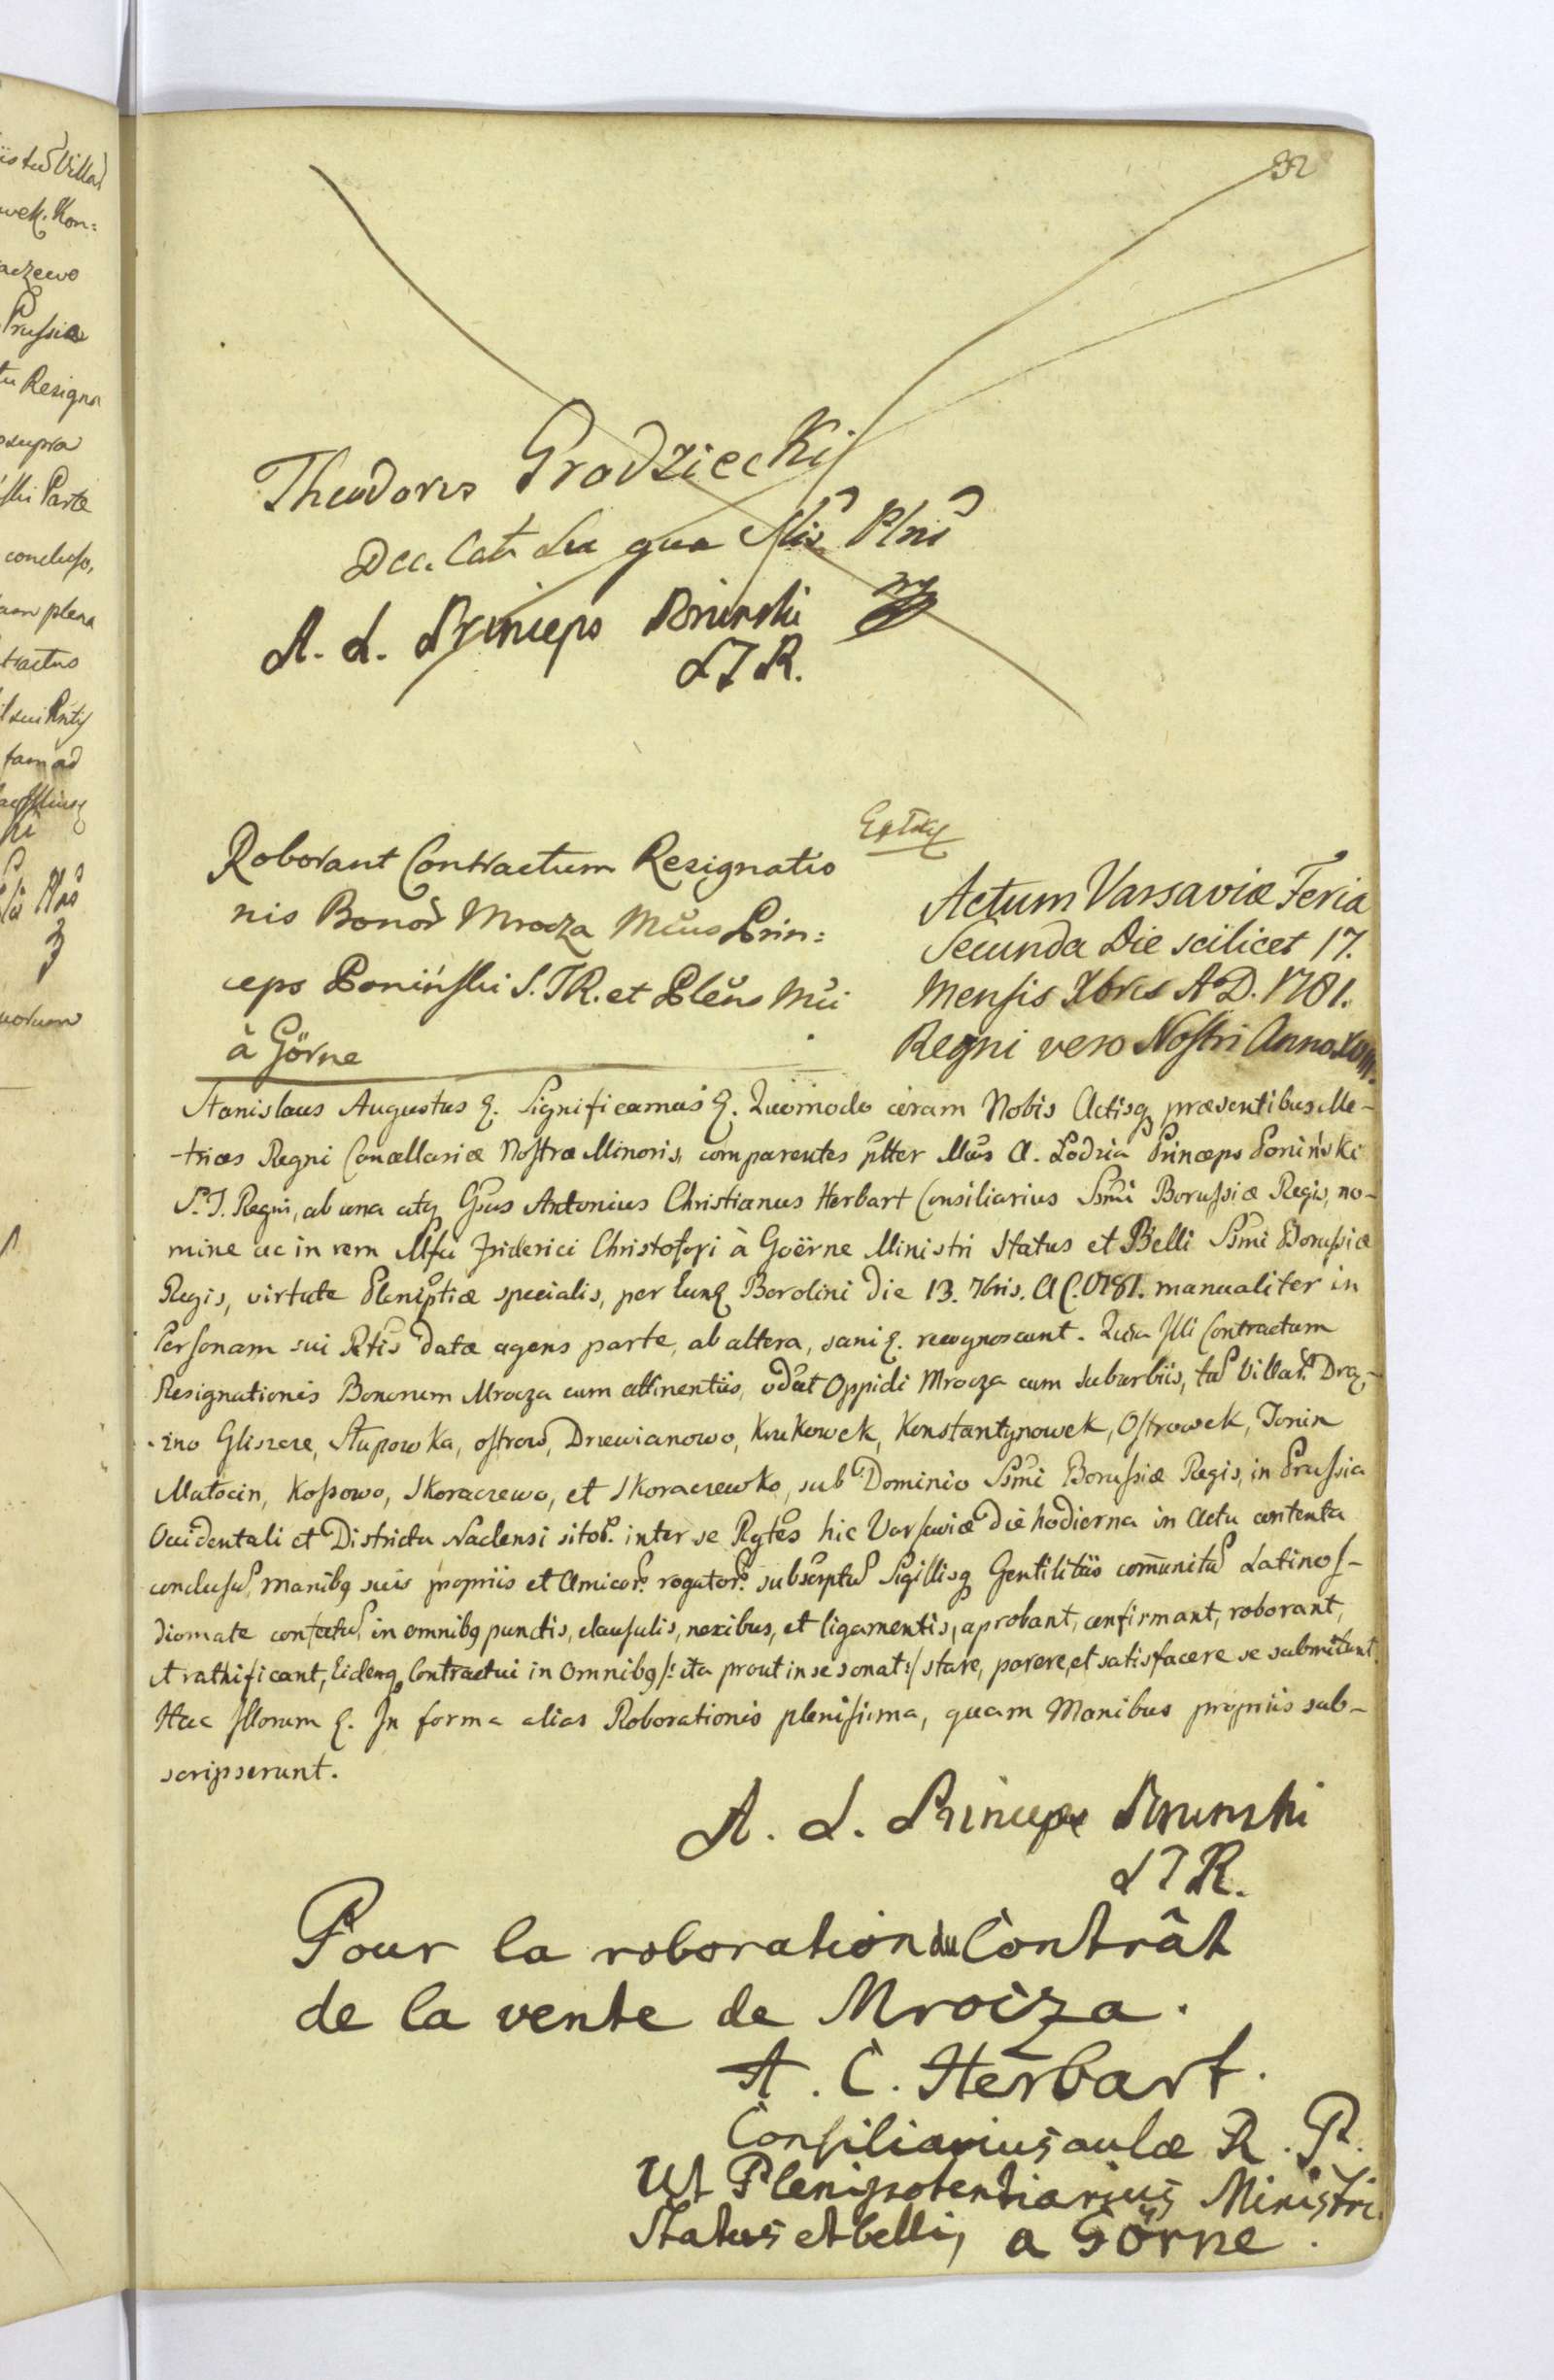 32
Theodorus Grodziecki
A. L. Princeps Poninski
S I R.
Roborant Contractum Resignatio
nis Bonor Mrocza Mcus Prin:
ceps Poniński S. I R. et Plens Mci
à Görne
Extdy
Actum Varsaviæ Feria
Secunda Die scilicet 17.
Mensis Xbris A D. 1781.
Regni vero Nostri Anno XVIII.
Stanislaus Augustus &. Significamus &. Quomodo coram Nobis Actisq præsentibus Me-
-trices Regni Cancellariæ Nostræ Minoris, comparentes pltter Mcus A. Lodzia Princeps Poniński
S. I. Regni, ab una atq Gsus Antonius Christianus Herbart Consiliarius Ssmi Borussiæ Regis, no-
mine ac in rem Friderici Christofori à Goërne Ministri Status et Belli Ssmi Borussiæ
Regis, virtute Plenipttiæ specialis, per Eunq Berolini Die 13. 7bris. A C. 1781. manualiter in
Personam sui Ptis datæ agens parte, ab altera, sani &. recognoscunt. Quia Illi Contractum
Resignationis Bonorum Mrocza cum attinentiis, vdzt Oppidi Mrocza cum Suburbiis, td Villar. Drą-
-zno Gliszcze, Słupowka, ostrow, Drzewianowo, Krukowek, Konstantynowek, Ostrowek, Jonin
Matocin, Kossowo, Skoraczewo, et Skoraczewko, sub Dominio Ssmi Borussiæ Regis, in Prussia
Occidentali et Districtu Naclensi sitor. inter se Rgtes hic Varsaviæ die hodierna in Actu contenta
conclusu, manibq suis propriis et Amicor. rogator. subscrptu Sigillisq Gentilitiis com̄unitu Latino I-
diomate confectu, in omnibq punctis, clausulis, nexibus, et ligamentis, aprobant, confirmant, roborant,
et rathificant, Eidemq Contractui in Omnibq /: ita prout in se sonat :/ stare, parere, et satisfacere se submittunt.
Hac Illorum &. In forma alias Roborationis plenissima, quam Manibus propriis sub-
scripserunt.
A. L. Princeps Poninski
S I R.
Pour la roboration du Contrât
de la vente de Mrocza.
A. C. Herbart.
Consiliarius aulæ R. P.
Ut Plenipotentiarius Ministri
Status et belli, a Görne.